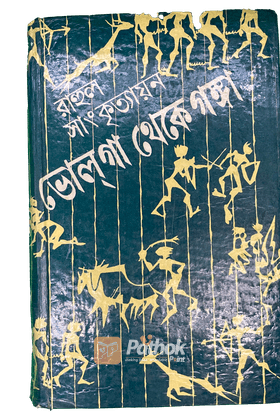 রাহুল
সাংকৃত্যায়ন
ভোল্‌গা থেকে গঙ্গা
Pathok
Print